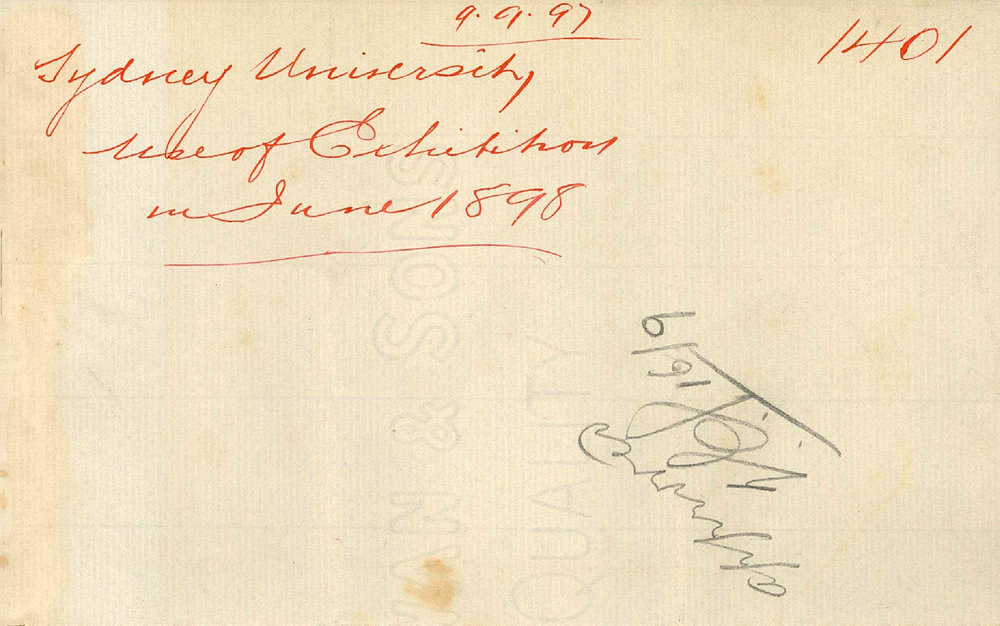 9.9.97
1401
Sydney University
Use of Exhibition
in June 1898
16/9
& SONS
QUALITY